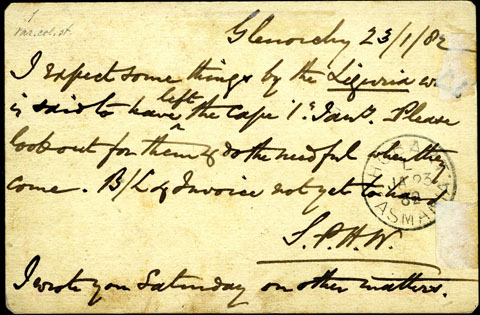 1
var. col. st.
Glenorchy 23/1/82
I expect some things by the Liguria w
is said to have left the Cape 1st Jany. Please
look out for them & do the needful when they
come. B/L & Invoice not yet to hand
HOBART
JA 23
82
TASMANIA
S.P.H.W.
I wrote you Saturday on other matters.